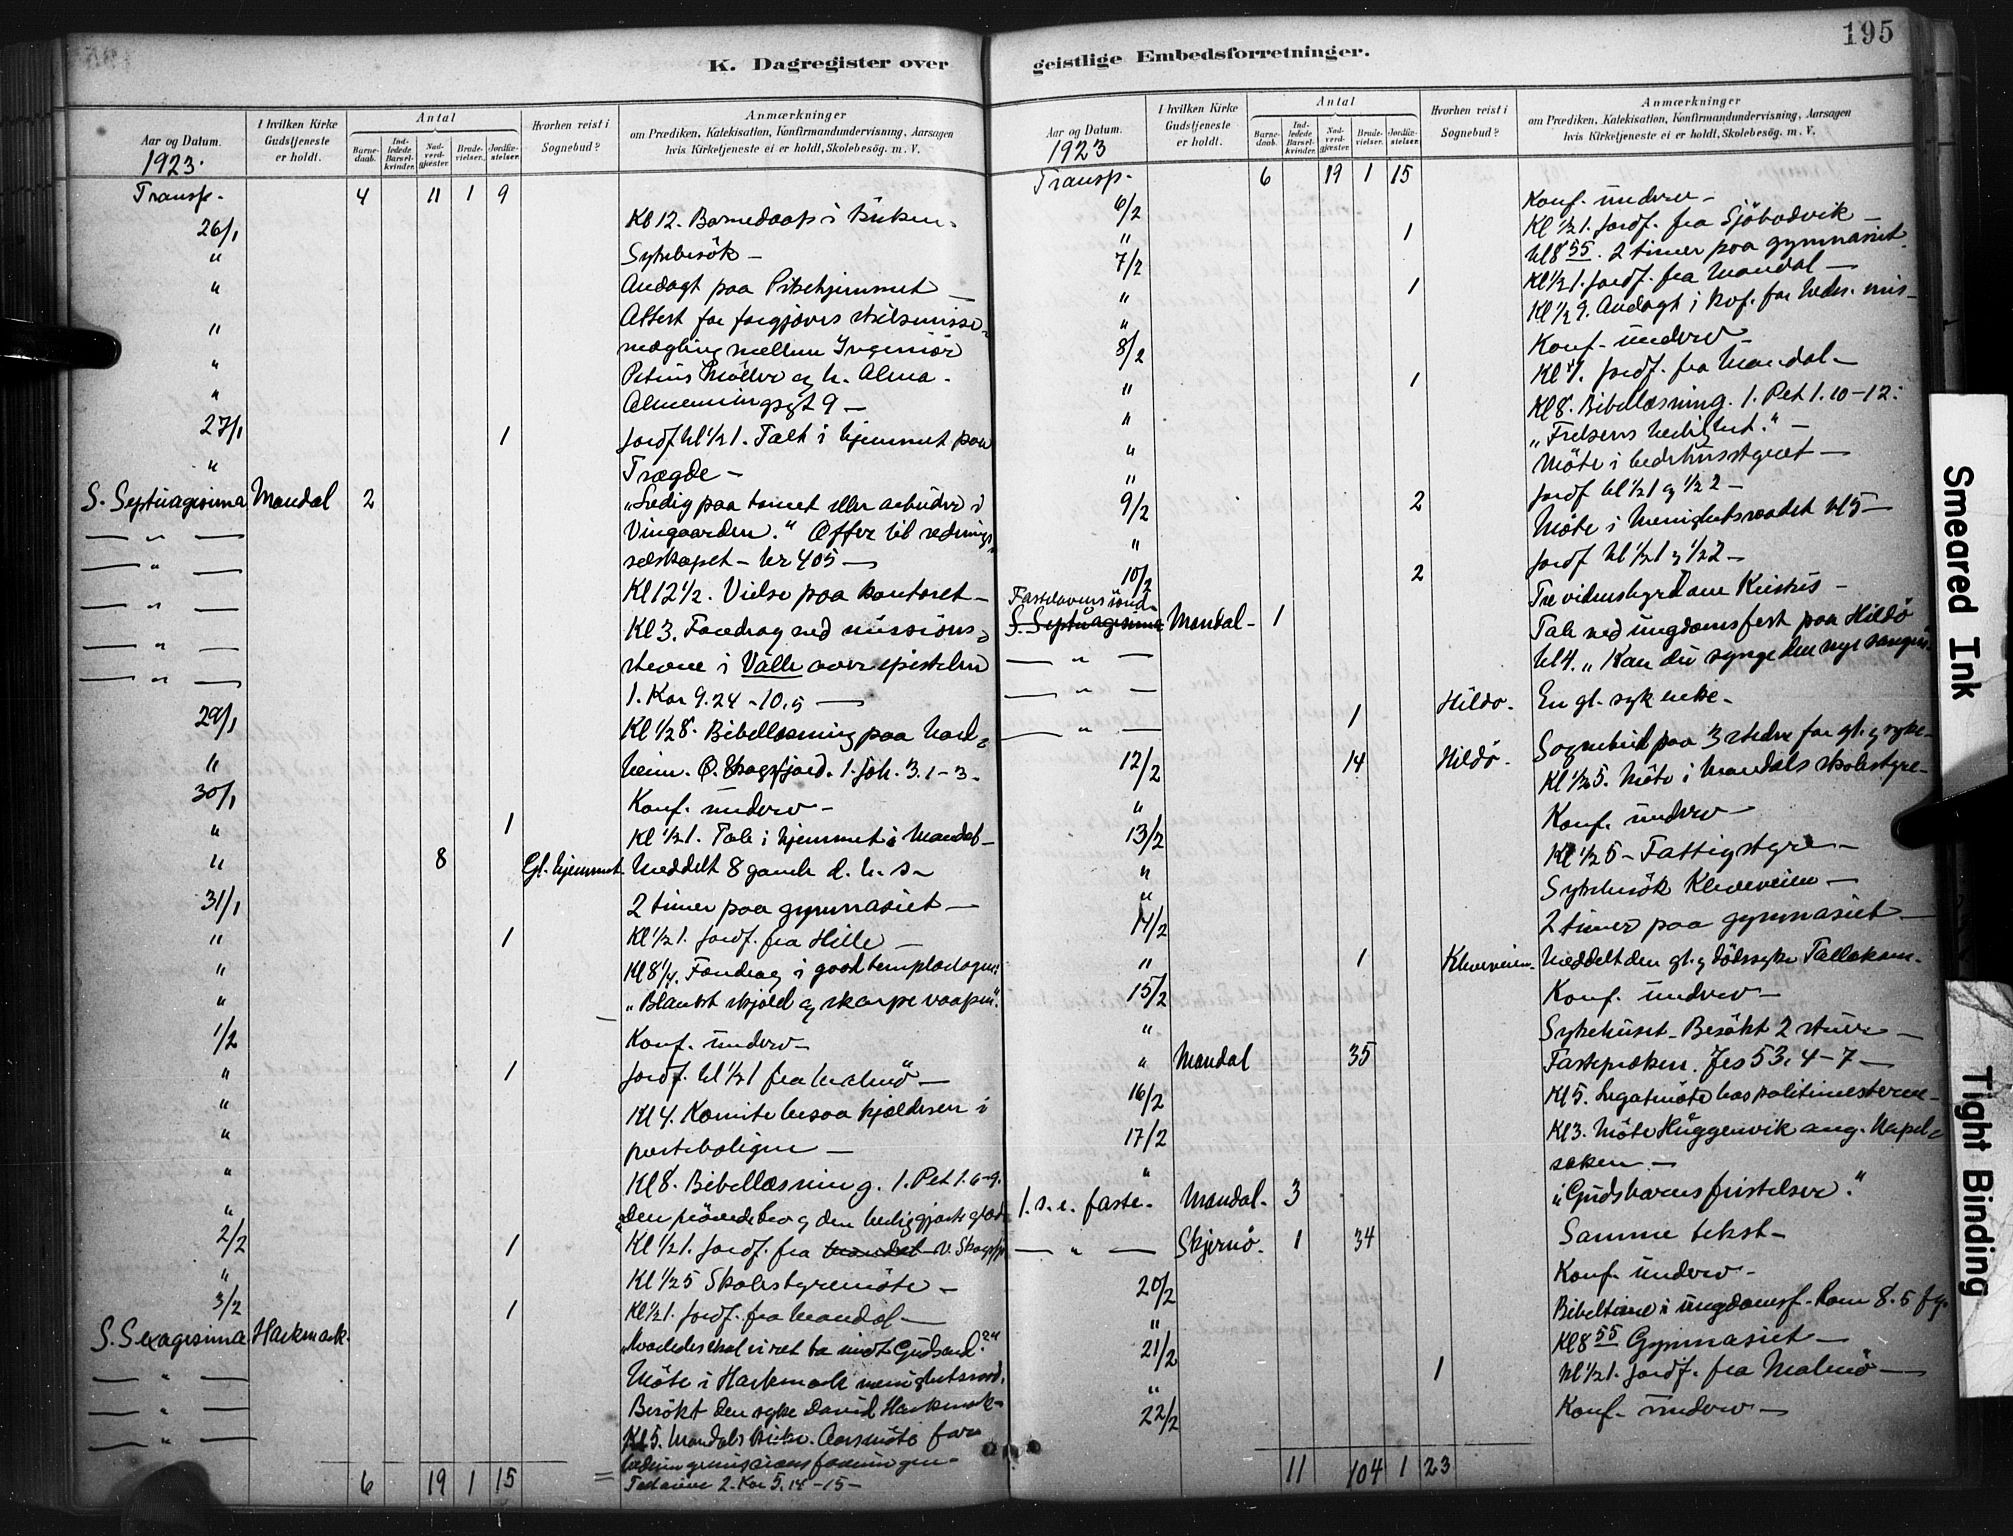 195
K. Dagregister over geistlige Embedsforretninger.
Aar og Datum.
1923.
I hvilken Kirke Gudstjeneste er holdt.
Antal
Barnedaab.
Indledede Barselkvinder.
Nadverdgjæster.
Brudevielser.
Jordfæstelser.
Hvorhen reist i Sognebud?
Anmærkninger
om Prædiken, Katekisation, Konfirmandundervisning, Aarsagen
hvis Kirketjeneste ei er holdt, Skolebesøg. m. V.
Transp. 4 11 1 9
26/1 Kl 12. Barnedaap i Kirken.
" Sykebesök –
" Andagt paa Pikehjemmet –
" Attest for forgjæves
mægling mellem Ingeniör
" Petrus Möller og h. Alma.
" 9 –
27/1 1 Jordf. kl 1/2 1. Tale i hjemmet paa
" Trægde –
S. Septuagesima Mandal 2 "Ledig paa torvet eller arbeider i
— " — Vingaarden." Offer til rednings
— " — selskapet – kr 405 —
— " — Kl 12 1/2. Vielse paa kontoret –
— " — Kl 3. Foredrag ved missions-
— " — stevne i Valle over epistelen
— " — 1. Kor 9.24 – 10.5 —
29/1 Kl 1/2 8. Bibellæsning paa
" heim. Ö. Skogsfjord. 1. Joh. 3.1–3.
30/1 Konf. underv –
" 1 Kl 1/2 1. Tale i hjemmet i Mandal –
" 8 Gl. hjemmet. Meddelt 8 gamle d. h. s –
31/1 2 timer paa gymnasiet –
" 1 Kl 1/2 1. Jordf. fra Hille –
" Kl 8 1/4. Foredrag i
" "Blankt skjold og skarpe vaapen".
1/2 Konf. underv –
" 1 Jordf. kl 1/2 1 fra Malmö –
" Kl 4. Komite besaa kjælderen i
" presteboligen —
" Kl 8. Bibellæsning. 1. Pet 1.6–9.
" "Den prövede tro og den
2/2 1 Kl 1/2 1. Jordf. fra Mandal V. Skogsfj.
" Kl 1/2 5 Skolestyremöte –
3/2 1 Kl 1/2 1. Jordf. fra Mandal –
S. Sexagesima Harkmark. "Hvorledes skal vi ret ta imot Gudsord?"
— " — Möte i Harkmark menighetsraad.
— " — Besökt den syke David Harkmark –
— " — Kl 5. Mandals Kirke. Aarsmöte for
Tekst 2. Kor 5.14–15 –
6 19 1 15
Aar og Datum.
1923
I hvilken Kirke Gudstjeneste er holdt.
Antal
Barnedaab.
Indledede Barselkvinder.
Nadverdgjæster.
Brudevielser.
Jordfæstelser.
Hvorhen reist i Sognebud?
Anmærkninger
om Prædiken, Katekisation, Konfirmandundervisning, Aarsagen
hvis Kirketjeneste ei er holdt, Skolebesøg. m. V.
Transp. 6 19 1 15
6/2 Konf. underv –
" 1 Kl 1/2 1. Jordf. fra Sjöbodvik –
7/2 kl 8 55. 2 timer paa gymnasiet.
" 1 Kl 1/2 1. Jordf. fra Mandal –
" Kl 1/2 9. Andagt i
8/2 Konf. underv –
" 1 Kl 1. Jordf. fra Mandal –
" Kl 8. Bibellæsning. 1. Pet 1.10–12:
" "Frelsens herlighet." –
" Möte i bedehusstyret –
9/2 2 Jordf kl 1/2 1 og 1/2 2 –
" Möte i Menighetsraadet kl 5 –
10/2 2 Jordf kl 1/2 1 og 1/2 2 –
Fastelavenssönd.
S. Septuagesima Mandal – 1 Tre vidnesbyrd om Kristus –
— " — Tale ved ungdomsfest paa Hildö
kl 4. "Kan du synge den nye sangen".
— " — 1 Hildö. En gl. syk enke –
— " — 14 Hildö. Sognebud paa 3 steder for gl. og syke –
12/2 Kl 1/2 5. Möte i Mandals skolestyre –
" Konf. underv –
13/2 Kl 1/2 5 – Fattigstyre –
" Sykebesök Kleveveien –
14/2 2 timer paa gymnasiet –
" 1 Kleveveien. Meddelt den gl. og dödssyke
15/2 Konf. underv –
" Sykehuset. Besökt 2 stuer –
" Mandal 35 Fasteprœken. Jes 53.4–7 –
16/2 Kl 5. Legatmöte hos politimesteren –
17/2 Kl 3. Möte Huggenvik ang. Kapel-
" saken –
1. s. i. faste. Mandal – 3 "Gudsbarns fristelser."
— " — Skjernö. 1 34 Samme tekst –
20/2 Konf. underv –
" Bibeltime i ungdomsf. Rom 8.5 fg.
21/2 Kl 8 55 Gymnasiet –
" 1 kl 1/2 1. Jordf. fra Malmö –
22/2 Konf. underv –
11 104 1 23
Smeared Ink
Tight Binding